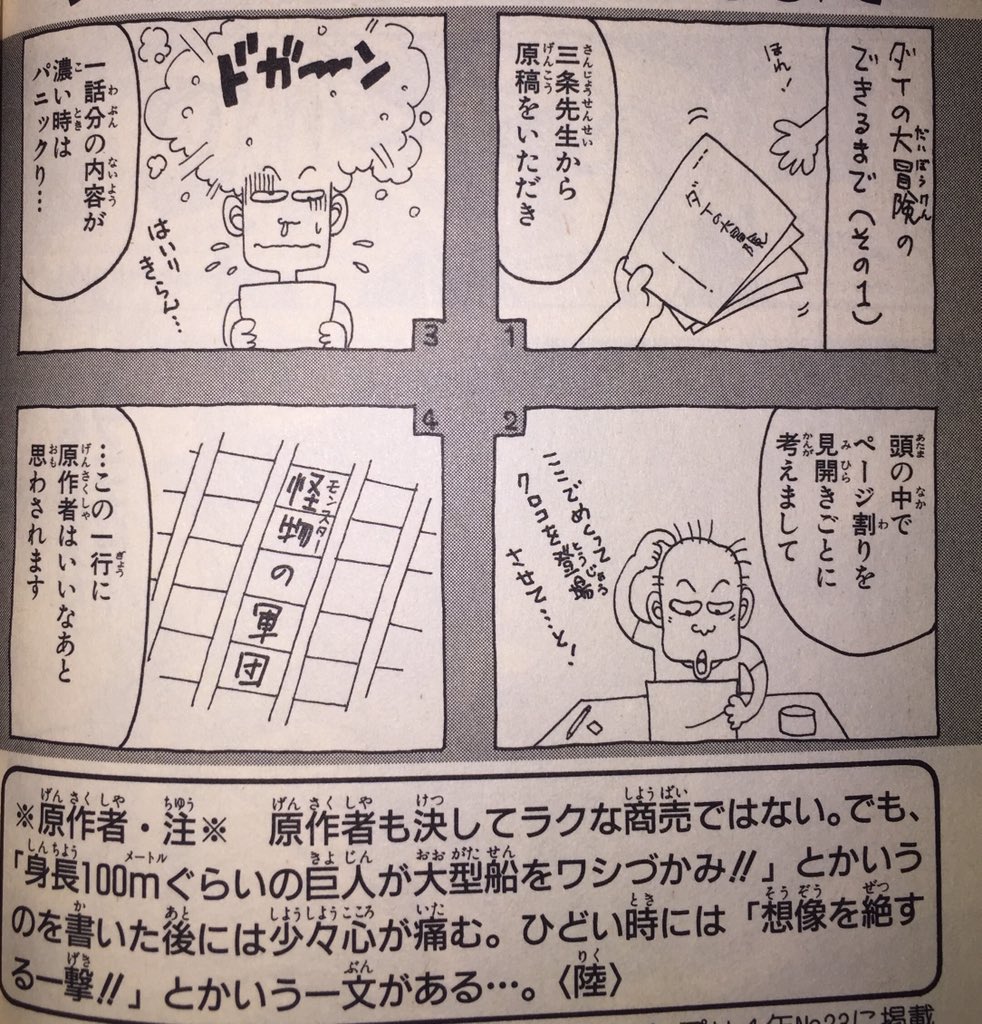 ダイの大冒険の
できるまで(その1)
ほれ!
三条先生から
原稿をいただき
ダイの大冒険
1
頭の中で
ページ割りを
見開きごとに
考えまして
ここでめくって
クロコを登場
させて…と!
2
ドガーン
一話分の内容が
濃い時は
パニックり…
はいり
きらん…
3
怪物の軍団
…この一行に
原作者はいいなあと
思わされます
4
※原作者・注※ 原作者も決してラクな商売ではない。でも、
「身長100mぐらいの巨人が大型船をワシづかみ!!」とかいう
のを書いた後には少々心が痛む。ひどい時には「想像を絶す
る一撃!!」とかいう一文がある…。〈陸〉